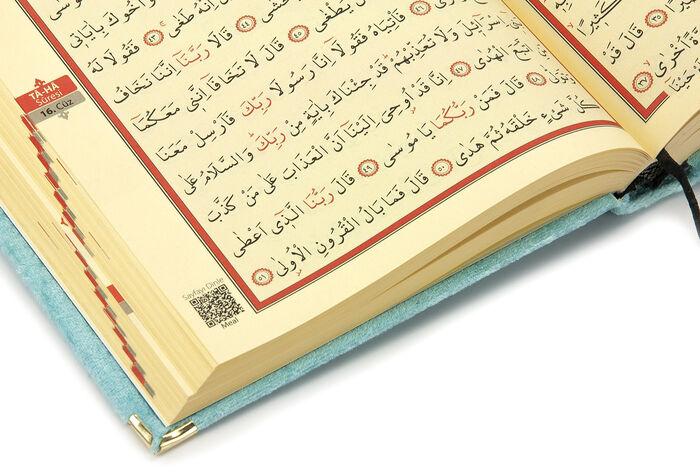 وَاَخُوكَ بِاٰيَاتٖى
اِنَّهُ طَغٰى ﴿٤٣﴾ فَقُولَا لَهُ
﴿٤٤﴾ قَالَا رَبَّنَا اِنَّنَا نَخَافُ
يَطْغٰى ﴿٤٥﴾ قَالَ لَا تَخَافَا اِنَّنٖى مَعَكُمَا
﴿٤٦﴾ فَاْتِيَاهُ فَقُولَا اِنَّا رَسُولَا رَبِّكَ فَاَرْسِلْ مَعَنَا
اِسْرَائٖيلَ وَلَا تُعَذِّبْهُمْ قَدْ جِئْنَاكَ بِاٰيَةٍ مِنْ رَبِّكَ وَالسَّلَامُ عَلٰى
اتَّبَعَ الْهُدٰى ﴿٤٧﴾ اِنَّا قَدْ اُوحِىَ اِلَيْنَا اَنَّ الْعَذَابَ عَلٰى مَنْ كَذَّبَ
﴿٤٨﴾ قَالَ فَمَنْ رَبُّكُمَا يَا مُوسٰى ﴿٤٩﴾ قَالَ رَبُّنَا الَّذٖى اَعْطٰى
كُلَّ شَىْءٍ خَلْقَهُ ثُمَّ هَدٰى ﴿٥٠﴾ قَالَ فَمَا بَالُ الْقُرُونِ الْاُولٰى ﴿٥١﴾
TÂ-HÂ
Sûresi
16. Cüz
Sayfayı Dinle
Meal
كَثٖيرًا
﴿٣٥﴾ قَالَ قَدْ
اُخْرٰى